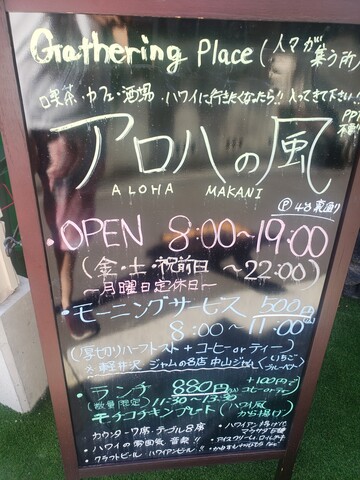 Gathering Place (人々が集う所)
喫茶・カフェ・酒場・ハワイに行きたくなったら!! 入ってきて下さい!!
アロハの風
ALOHA MAKANI
Ⓟ 4台 裏通り
・OPEN 8:00〜19:00
(金・土・祝前日 〜22:00)
〜月曜日定休日〜
・モーニングサービス 500円
8:00〜11:00
(厚切りハーフトースト + コーヒー or ティー)
軽井沢 ジャムの名店 中山ジャム (いちご ブルーベリー
・ランチ 880円 +100円で コーヒー or ティー
(数量限定) 11:30〜13:30
モチコチキンプレート (ハワイ風から揚げ)
カウンター9席・テーブル8席
・ハワイの雰囲気 音楽!!
・クラフトビール・ハワイアンビール!!
・ハワイアン
マラサダ
・アイスクリーム